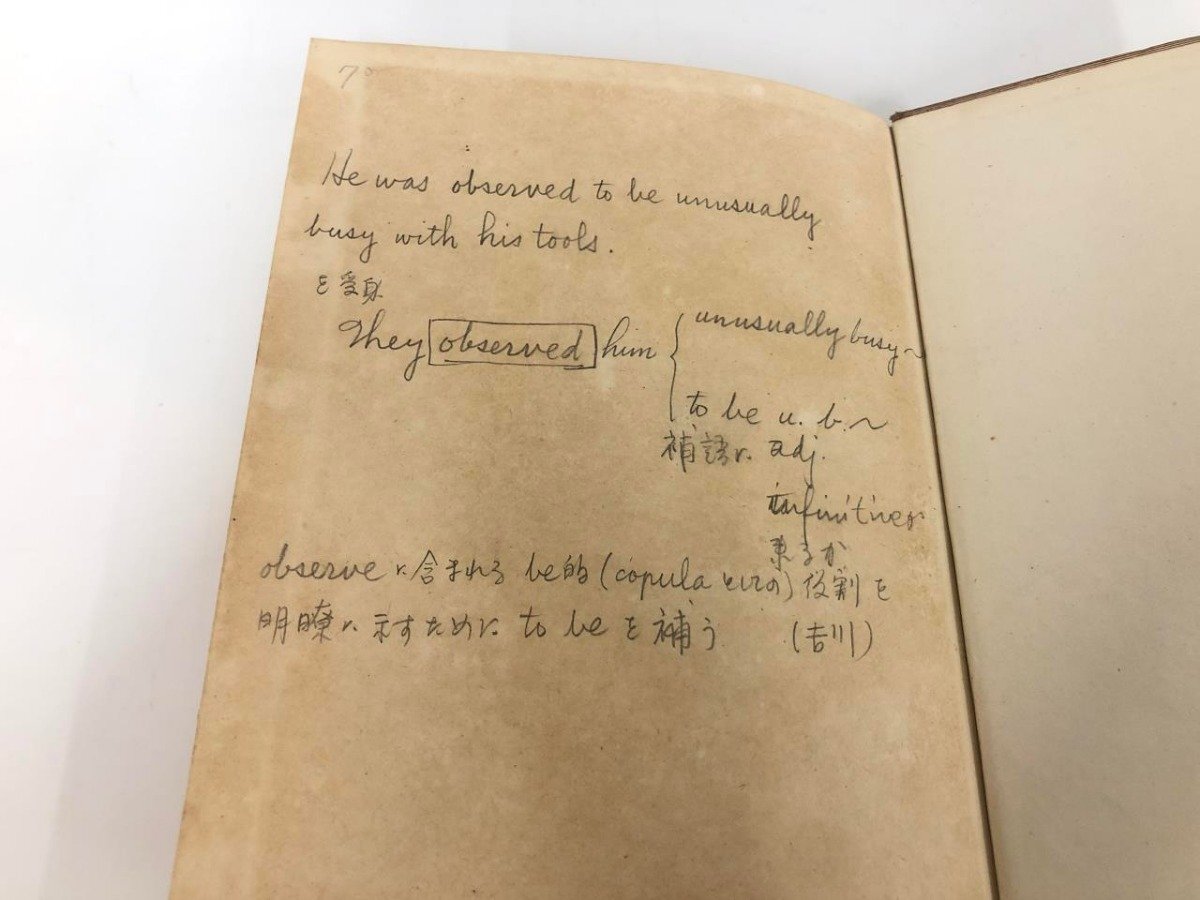 70
He was observed to be unusually
busy with his tools.
を受身
They observed him { unusually busy~
to be u. b. ~
補語に adj.
infinitiveが
来るか
observeに含まれる be的 (copulaとしての) 役割を
明瞭に示すために to be を補う (吉川)